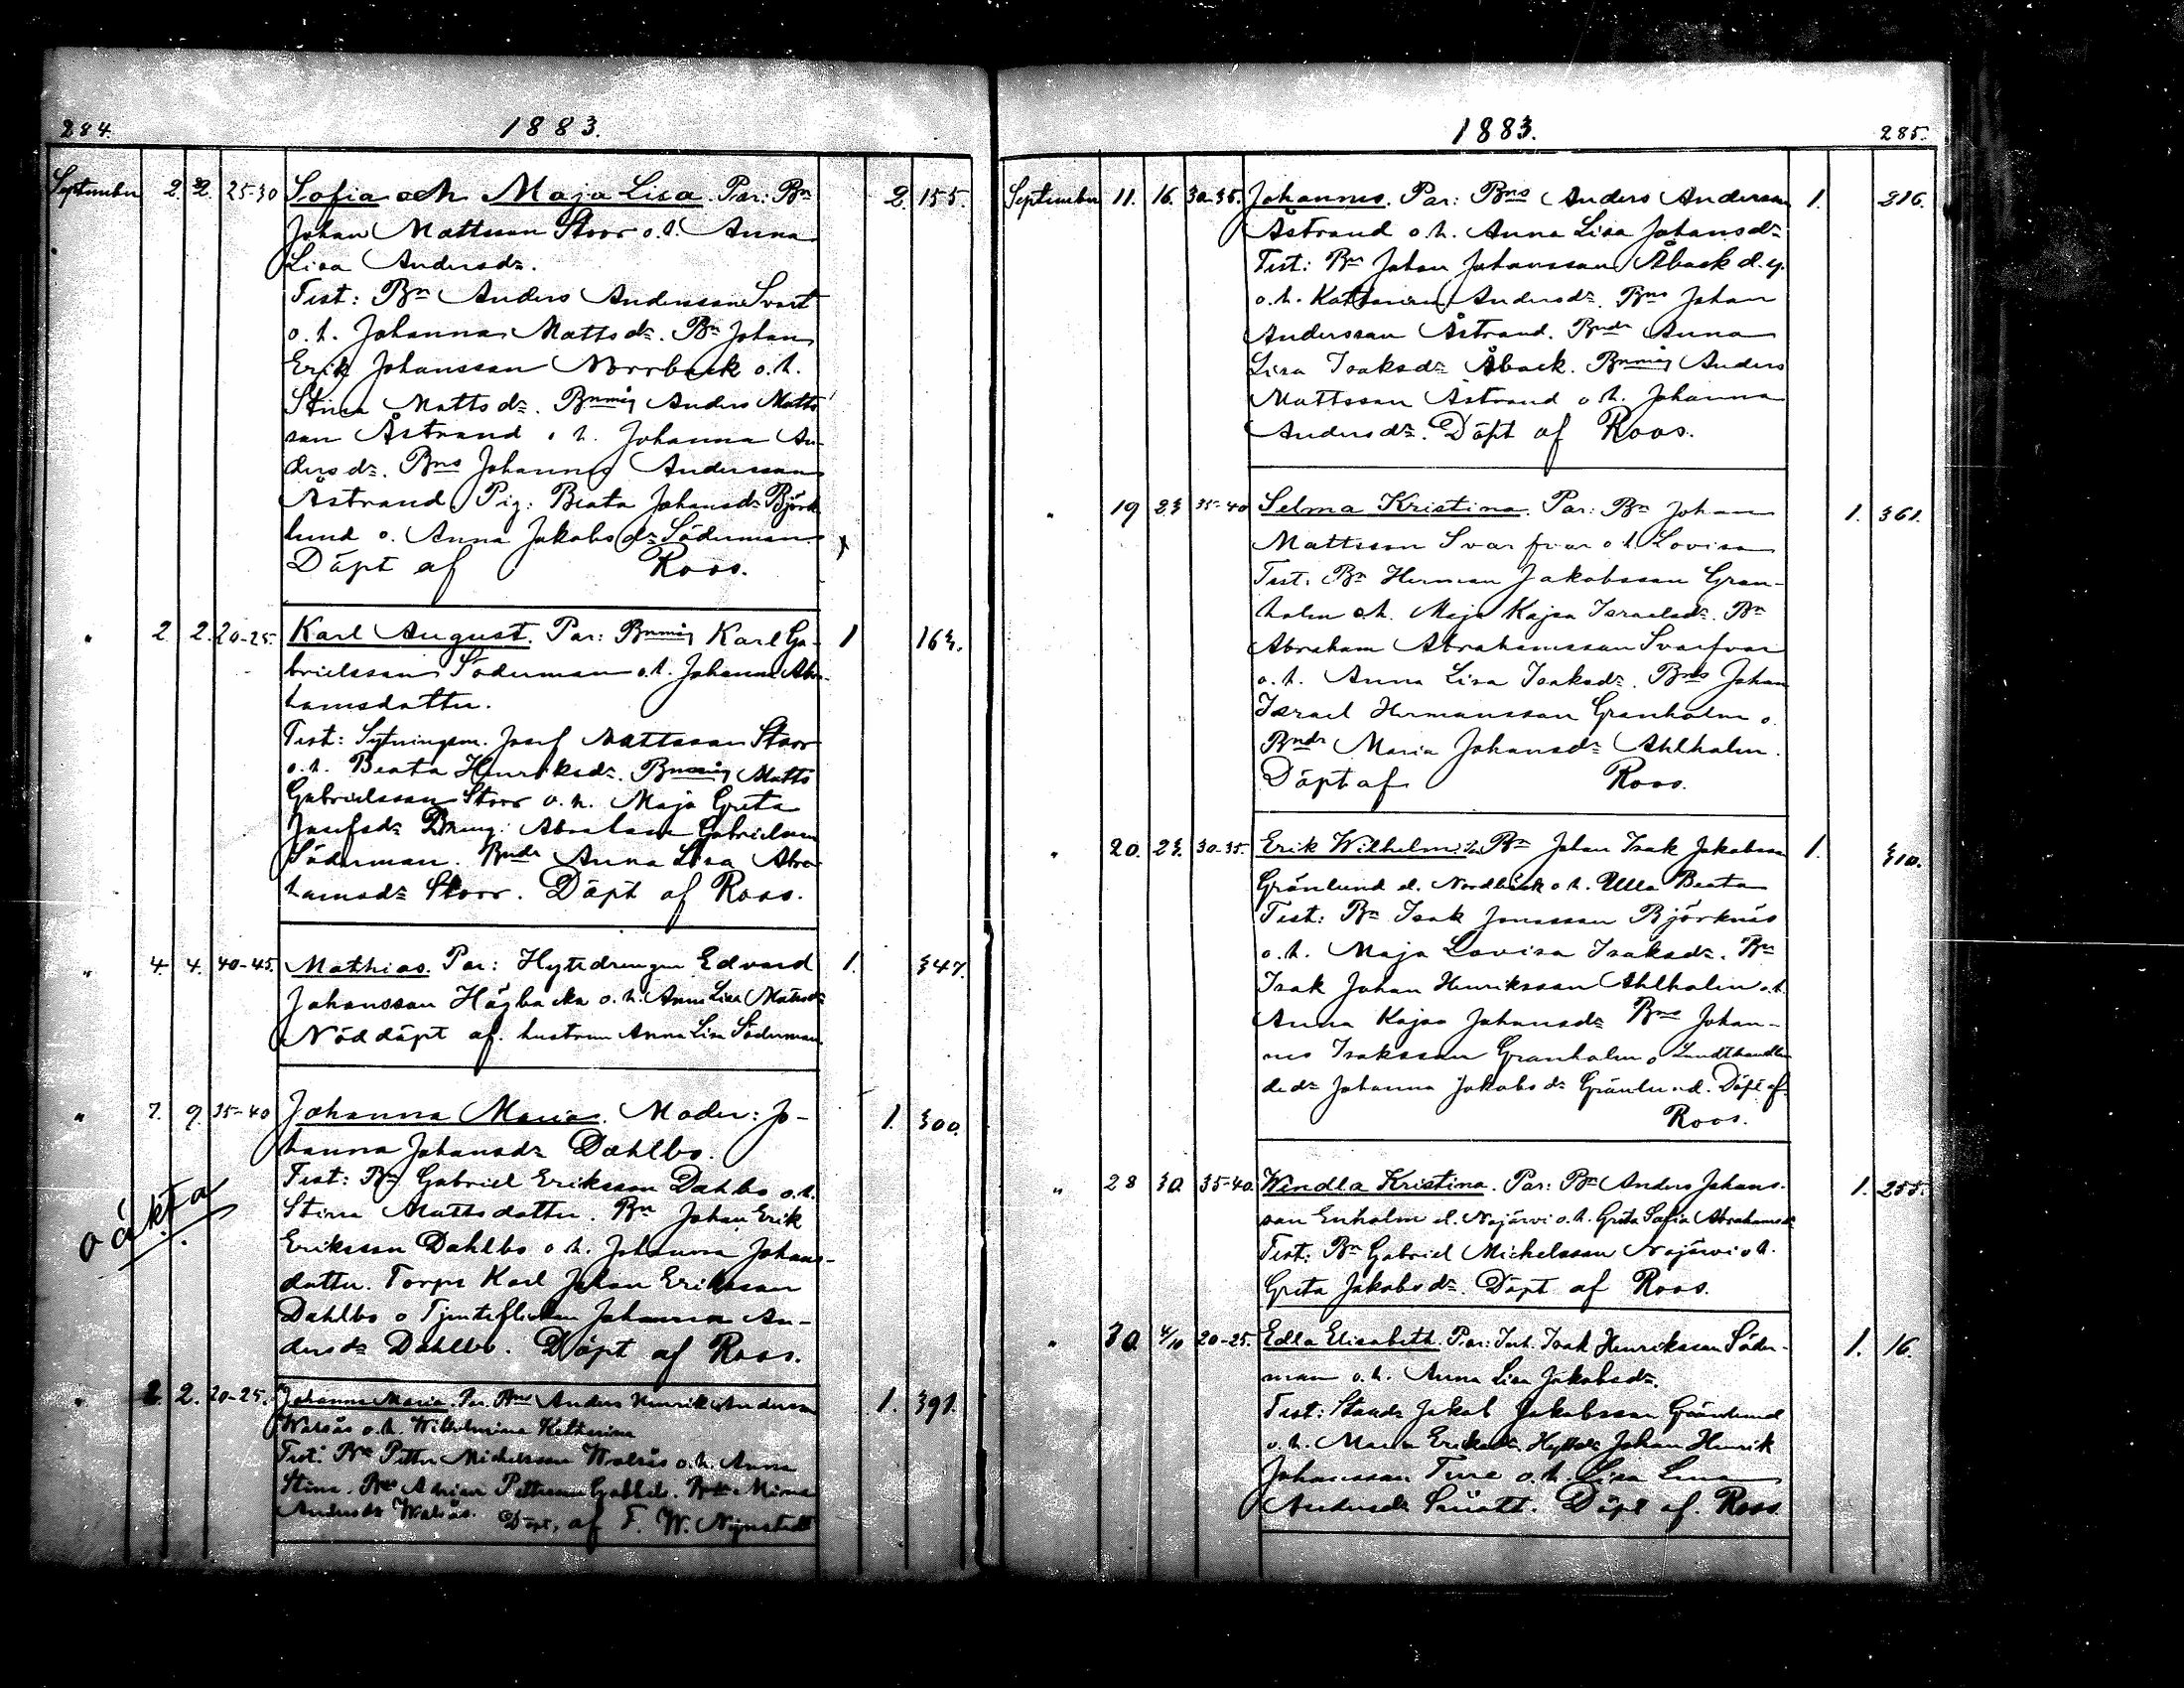 284. 1883.
September 2. 2. 25-30 Sofia och Maja Lisa. Par: Bn 2. 155.
Johan Mattsson Storr o. h. Anna
Lisa Andersdr.
Test: Bn Anders Andersson Svart
o. h. Johanna Mattsdr. Bn Johan
Erik Johansson Norrback o. h.
Stina Mattsdr. Bnmåg Anders Matts
son Åstrand o. h. Johanna An-
dersdr. Bns Johannes Andersson
Åstrand. Pig: Beata Johansdr Björk
lund o. Anna Jakobsdr Söderman
Döpt af Roos.
" 2. 2. 20-25. Karl August. Par: Bnmåg Karl Ga- 1 163.
brielsson Söderman o. h. Johanna Abra-
hamsdotter.
Test: Sytningsm. Josef Mattsson Storr
o. h. Beata Henriksdr. Bnmåg Matts
Gabrielsson Storr o. h. Maja Greta
Josefsdr Dreng: Abraham Gabrielsson
Söderman. Bndr Anna Lisa Abra
hamsdr Storr. Döpt af Roos.
" 4. 4. 40-45. Mathias. Par: Hyttedrengen Edvard 1. 347.
Johansson Högbacka o. h. Anna Lisa Matsdr
Nöddöpt af. hustrun Anna Lisa Söderman
" 7. 9. 35-40 Johanna Maria. Moder: Jo- 1. 300.
hanna Johansdr Dahlbo.
oäkta
Test: Bn Gabriel Eriksson Dahlbo o. h.
Stina Mattsdotter. Bn Johan Erik
Eriksson Dahlbo o. h. Johanna Johans-
dotter. Torps Karl Johan Eriksson
Dahlbo o Tjensteflickan Johanna An-
dersdr Dahlbo. Döpt af Roos.
" 2. 2. 20-25. Johanna Maria. Par. Bns Anders Henrik Andersson 1. 391.
Walsås o. h. Wilhelmina Katharina
Test: Bn Petter Michelsson Walsås o. h. Anna
Stina. Bns Adrian Pettersson Gabbels. Bndr Mina
Andersdr Walsås. Döpt. af F. W. Nynstedt
1883. 285.
September 11. 16. 30-35. Johannes. Par: Bns Anders Andersson 1. 216.
Åstrand o. h. Anna Lisa Johansdr
Test: Bn Johan Johansson Åback d. y.
o. h. Katharina Andersdr. Bns Johan
Andersson Åstrand. Bndr Anna
Lisa Isaksdr Åback. Bnmåg Anders
Mattsson Åstrand o h. Johanna
Andersdr. Döpt af Roos.
" 19 23 35-40 Selma Kristina. Par: Bn Johan 1. 361.
Mattsson Svarfvar o h. Lovisa
Test. Bn Herman Jakobsson Gran-
holm o. h. Maja Kajsa Israelsdr. Bn
Abraham Abrahamsson Svarfvar
o. h. Anna Lisa Isaksdr. Bns Johan
Israel Hermansson Granholm o.
Bndr Maria Johansdr Ahlholm.
Döpt af Roos.
" 20. 23. 30-35. Erik Wilhelm. Par Bn Johan Isak Jakobsson 1. 310.
Grönlund el. Nordbäck o h. Ulla Beata
Test: Bn Isak Jonasson Björknäs
o. h. Maja Lovisa Isaksdr. Bn
Isak Johan Henriksson Ahlholm o. h.
Anna Kajsa Johansdr Bns Johan-
nes Isaksson Granholm o Landthandlan
dedr Johanna Jakobsdr Grönlund. Döpt af
Roos.
" 28 30. 35-40. Wendla Kristina. Par: Bn Anders Johans- 1. 255.
son Enholm el. Najärwi o. h. Greta Sofia Abrahamsdr
Test: Bn Gabriel Michelsson Najärwi o h.
Greta Jakobsdr. Döpt af Roos.
" 30. 4/10 20-25. Edla Elisabeth. Par: Inh. Isak Henriksson Söder- 1. 16.
man o. h. Anna Lisa Jakobsdr.
Test: Stands Jakob Jakobsson Grönlund
o. h. Maria Eriksdr. Hyttdr Johan Henrik
Johansson Ture o. h. Lisa Lena
Andersdr Döpt af. Roos